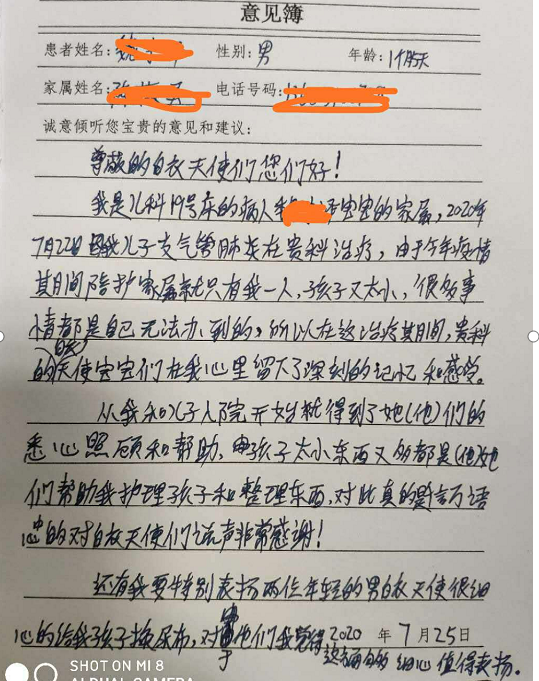 意见簿
患者姓名: 性别:男 年龄:1个月天
家属姓名: 电话号码:
诚意倾听您宝贵的意见和建议:
尊敬的白衣天使们您们好!
我是儿科19号床的病人 宝宝的家属,2020年
7月22日因我儿子支气管肺炎在贵科治疗,由于今年疫情
其期间陪护家属就只有我一人,孩子又太小,很多事
情都是自己无法办到的,所以在这治疗其期间,贵科
的白衣天使宝宝们在我心里留下了深刻的记忆和感觉。
从我和儿子入院开始就得到了她(他)们的
悉心照顾和帮助,因孩子太小东西又多都是(他)她
们帮助我护理孩子和整理东西,对此真的千言万语
心中的对白衣天使们说声非常感谢!
还有我要特别表扬两位年轻的男白衣天使很细
心的给我孩子换尿布,对于他们我觉得
这方面的细心值得表扬。
2020 年 7 月 25 日
SHOT ON MI 8